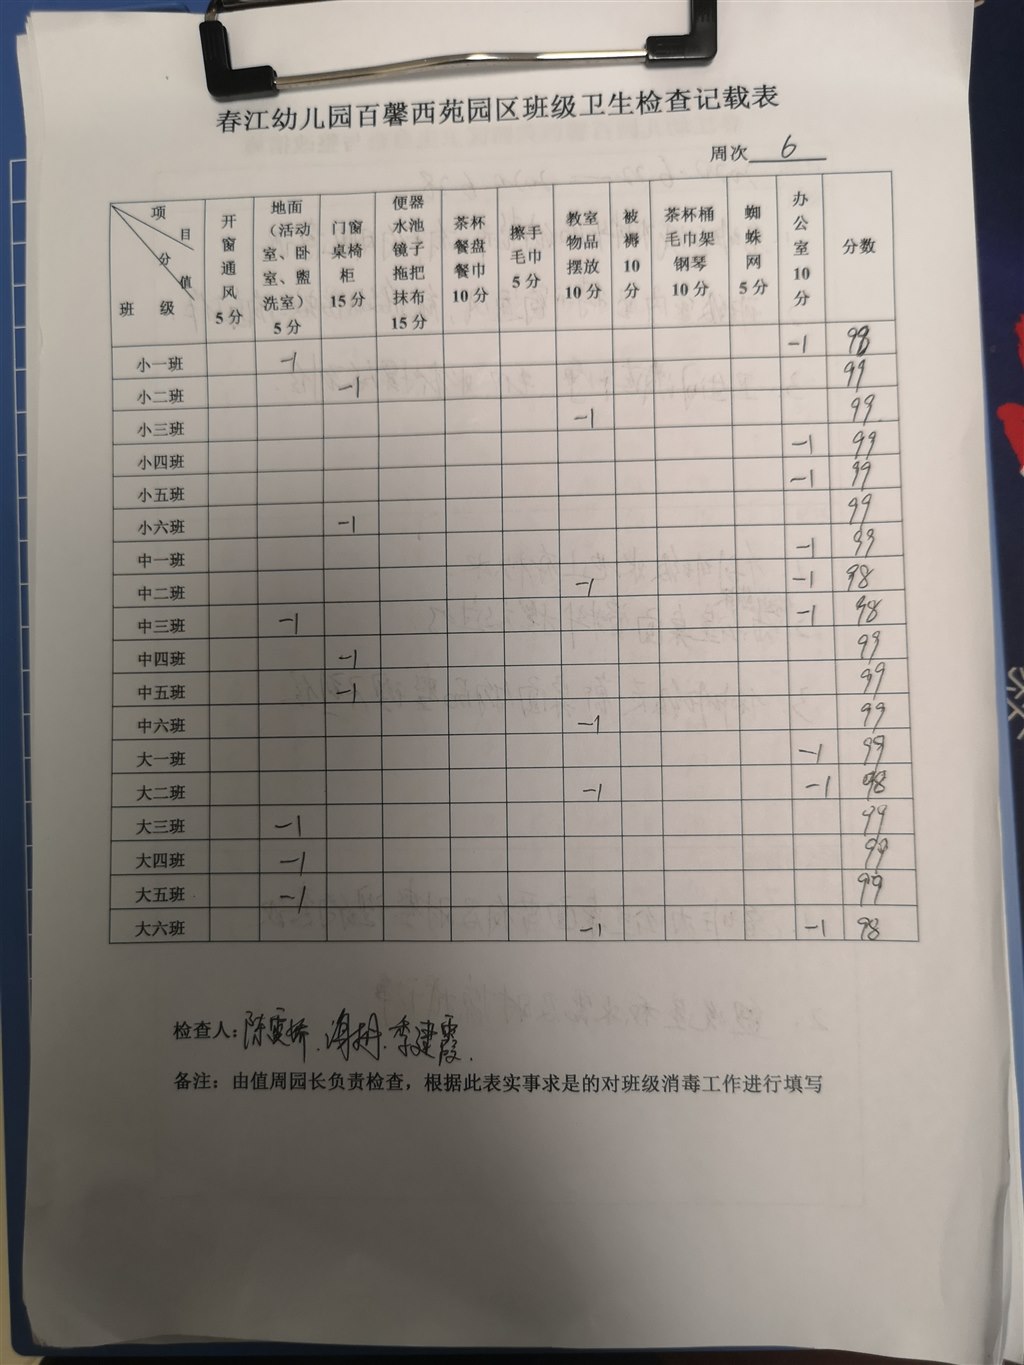 春江幼儿园百馨西苑园区班级卫生检查记载表
周次 6
项目 分值 班级 开窗通风5分 地面（活动室、卧室、盥洗室）5分 门窗桌椅柜15分 便器水池镜子拖把抹布15分 茶杯餐盘餐巾10分 擦手毛巾5分 教室物品摆放10分 被褥10分 茶杯桶毛巾架钢琴10分 蜘蛛网5分 办公室10分 分数
小一班 -1 -1 98
小二班 -1 99
小三班 -1 99
小四班 -1 99
小五班 -1 99
小六班 -1 99
中一班 -1 99
中二班 -1 -1 98
中三班 -1 -1 98
中四班 -1 99
中五班 -1 99
中六班 -1 99
大一班 -1 99
大二班 -1 -1 98
大三班 -1 99
大四班 -1 99
大五班 -1 99
大六班 -1 -1 98
检查人: 季建霞
备注：由值周园长负责检查，根据此表实事求是的对班级消毒工作进行填写